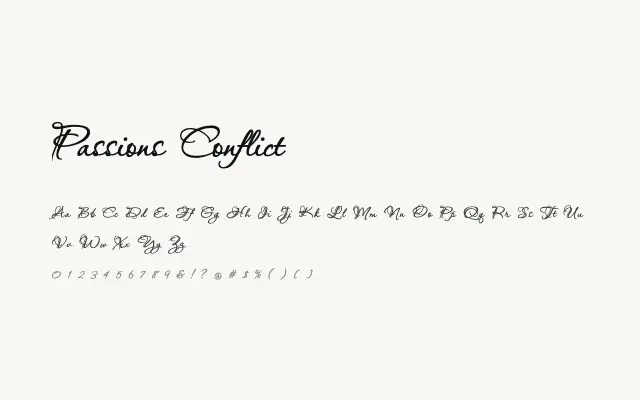 Passions Conflict
Aa Bb Cc Dd Ee Ff Gg Hh Ii Jj Kk Ll Mm Nn Oo Pp Qq Rr Ss Tt Uu
Vv Ww Xx Yy Zz
0 1 2 3 4 5 6 7 8 9 & ! ? @ # $ % ( ) [ ]